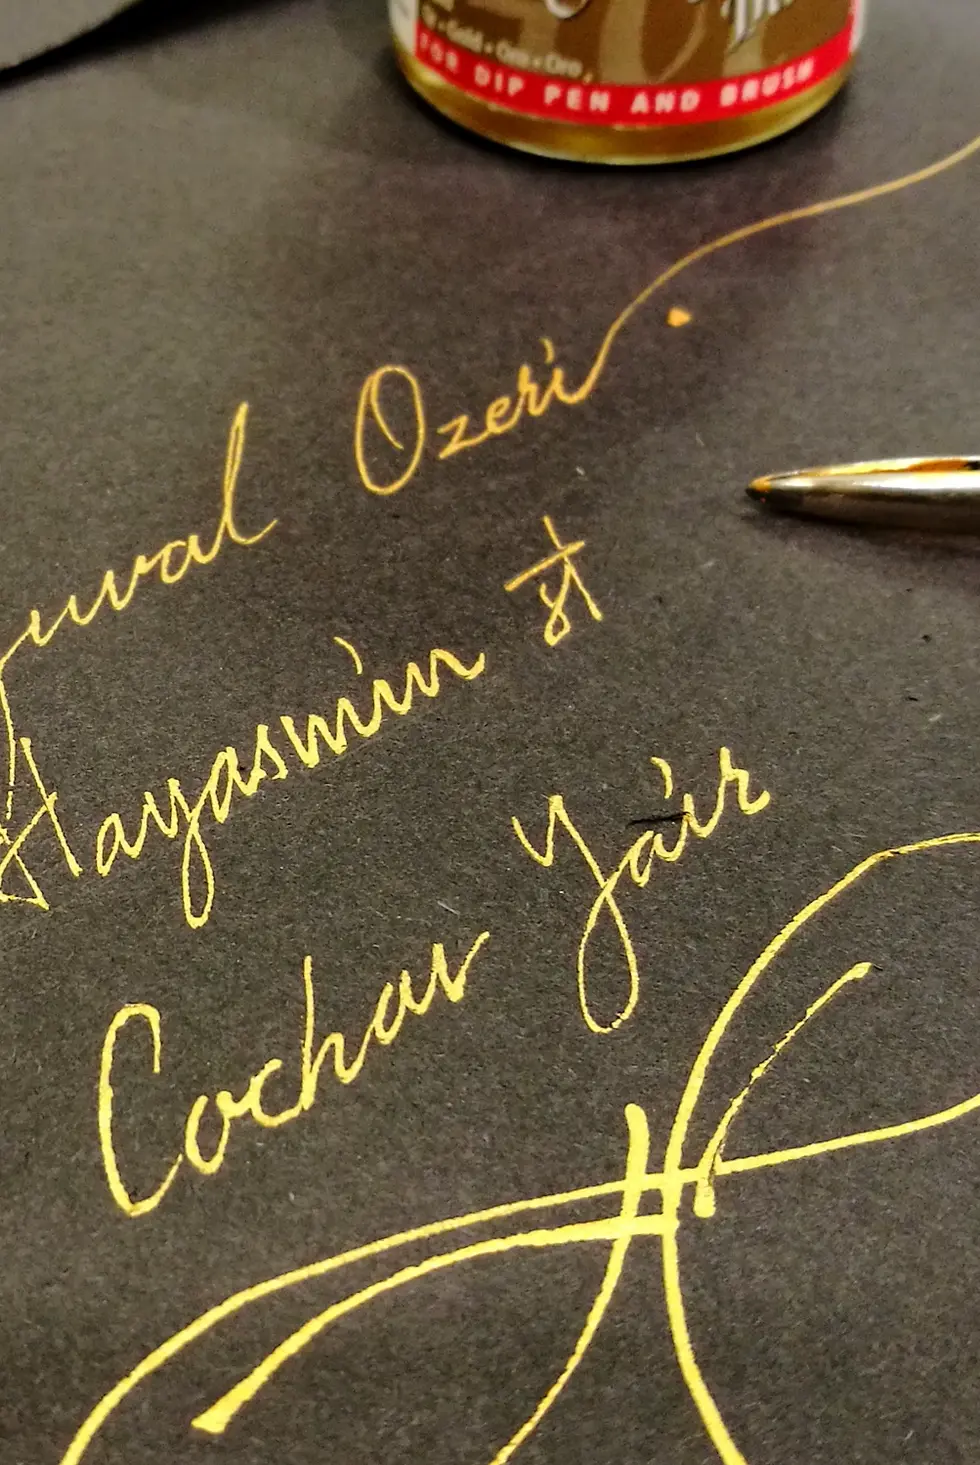 Gold • Oro
FOR DIP PEN AND BRUSH
uval Ozeri
Hayasmin
Yair
Cochav